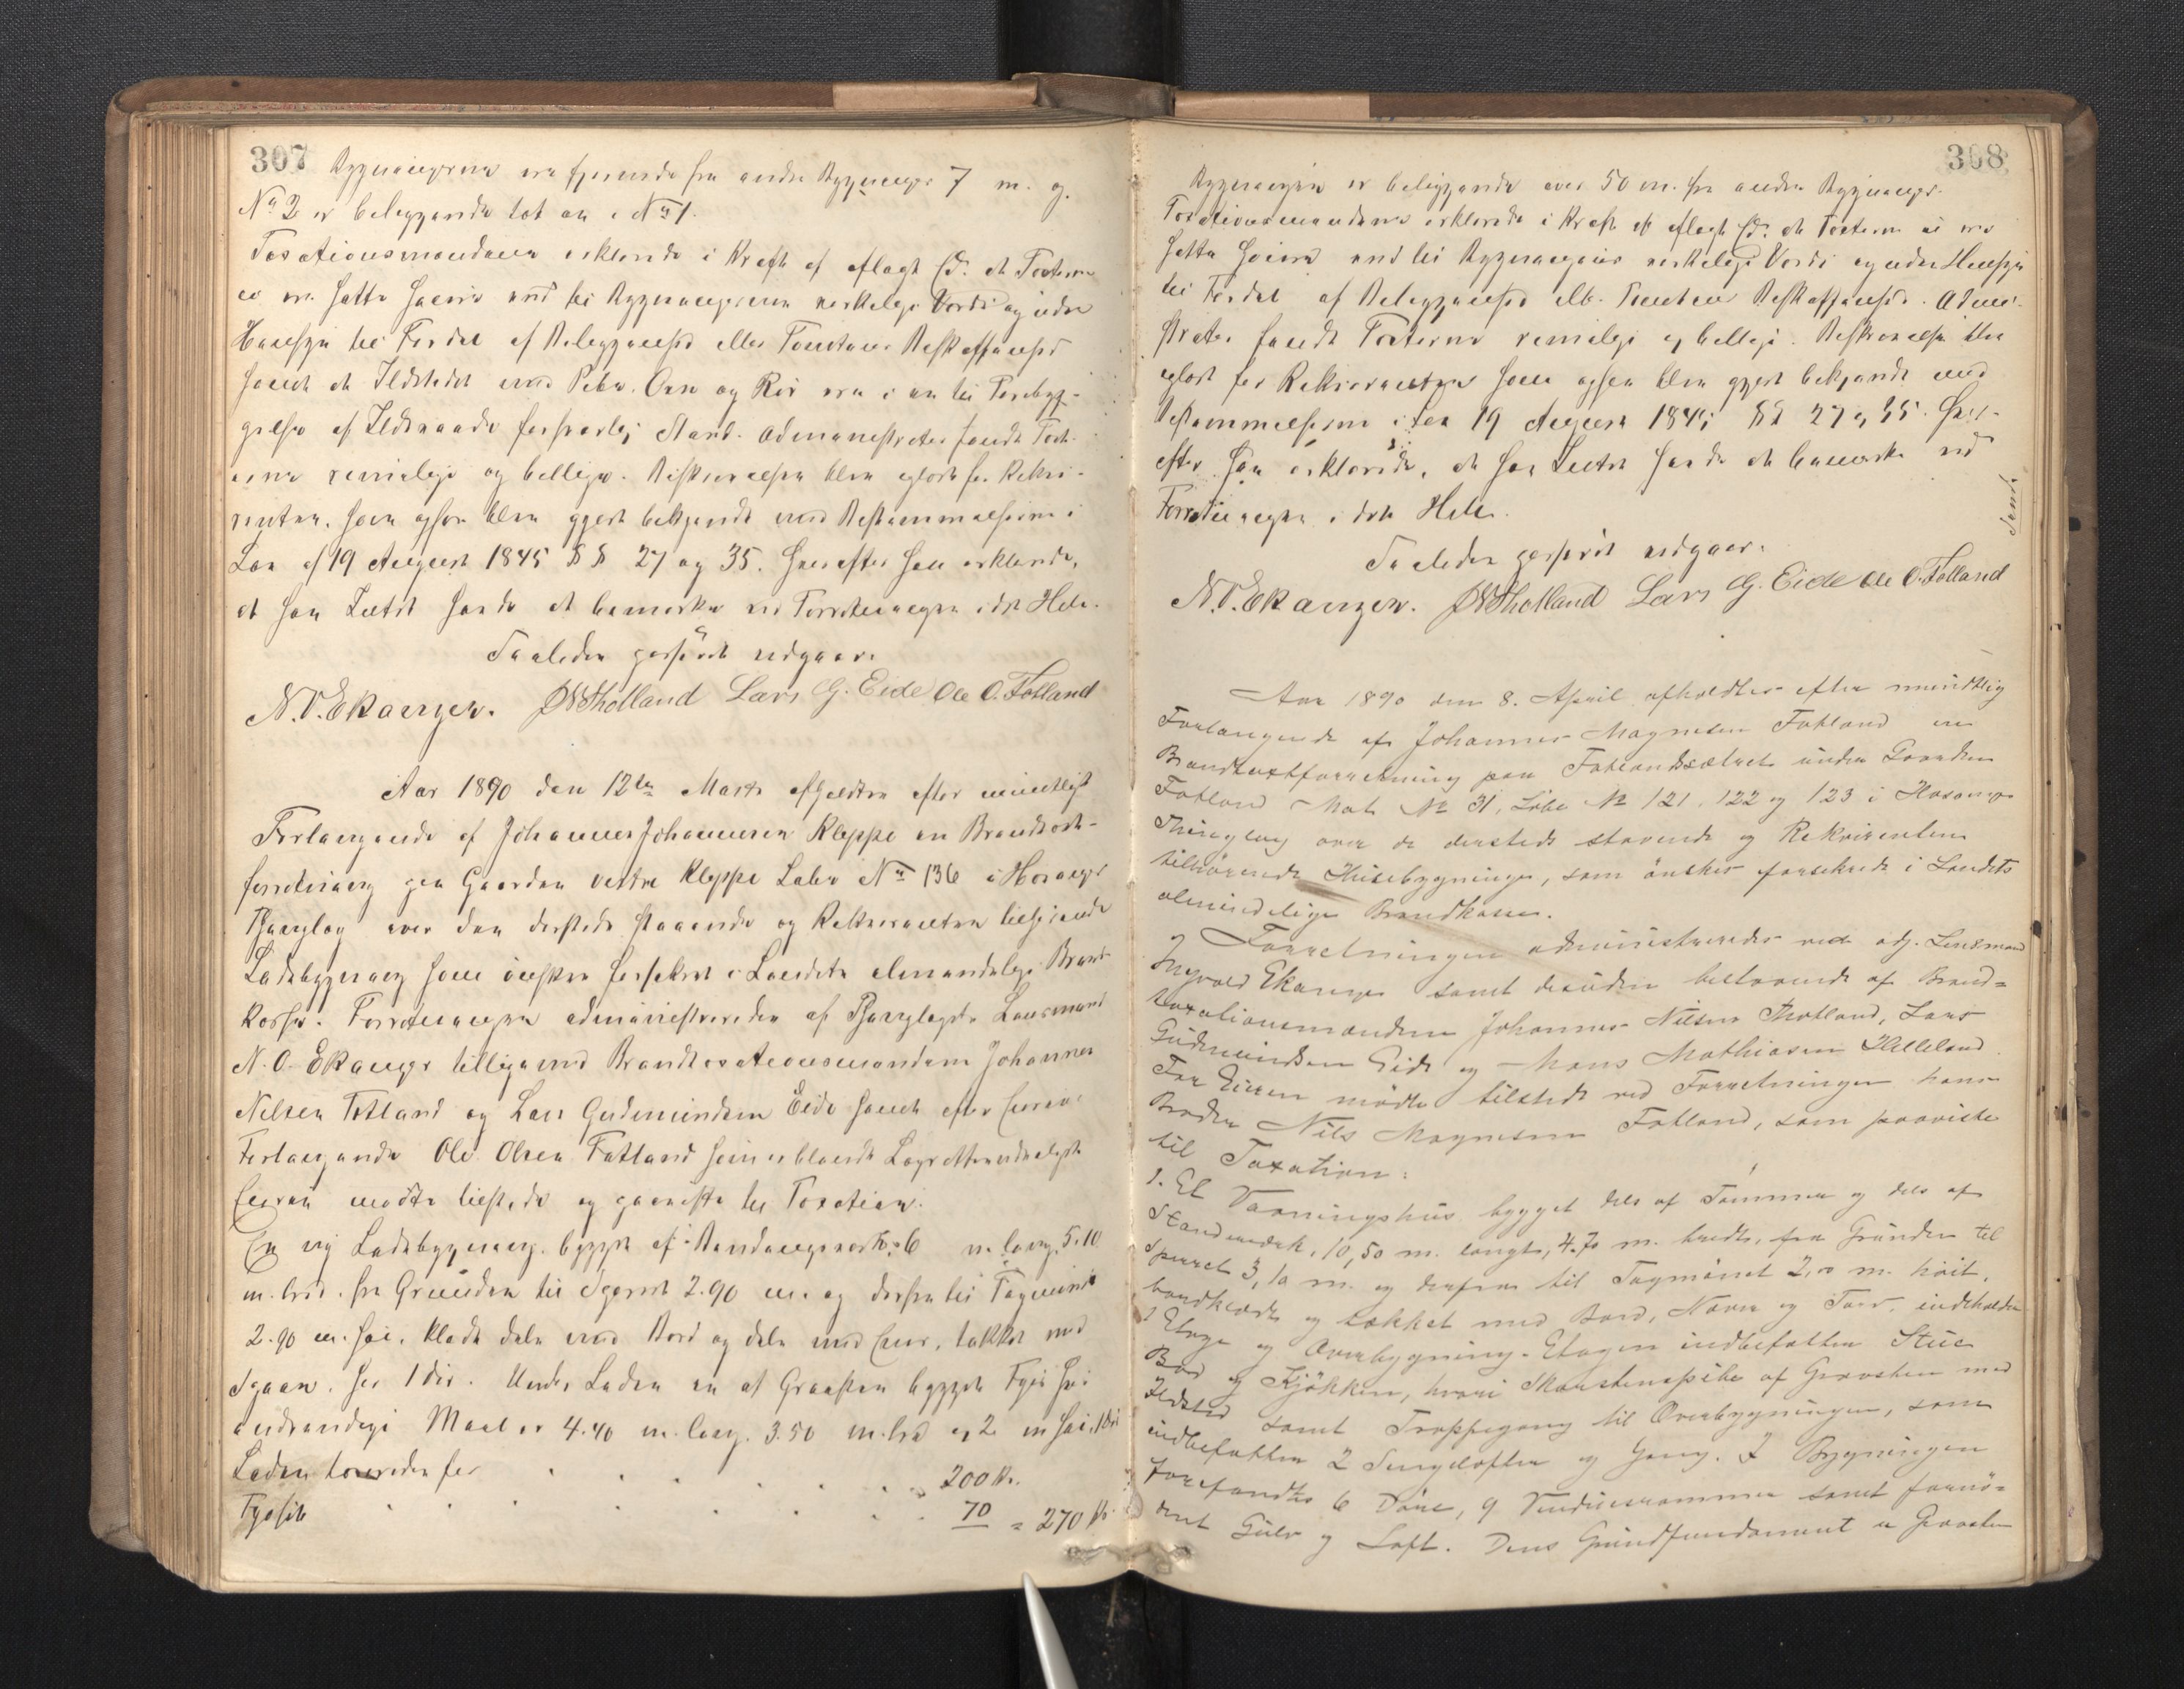 307
Bygningerne ere fjernede fra andre Bygninger 7 m. og
No 2 er beliggende tæt an i No 1.
Taxationsmændene erklærede i Kraft af aflagt Ed. at Taxterne
ei ere satte høiere end til Bygningernes virkelige Værdi og uden
Hensyn til Fordel af Beliggenhed eller Tomtens Beskaffenhed
samt at Ildstedet med Pibe. Ovn og Rør ere i en til Forebyg-
gelse af Ildsvaade forsvarlig Stand. Administrator fandt Taxt-
erne rimelige og billige. Beskrivelsen blev oplæst for Rekvi-
renten. som ogsaa blev gjort bekjendt med Bestemmelserne i
Lov af 19 August 1845 §§ 27 og 35. hvorefter han erklærede,
at han Intet havde at bemærke ved Forretningen i det Hele.
Saaledes passeret udgaar.
N. O. Ekanger. JN Thotland Lars G. Eide Ole O. Fotland
Aar 1890 den 12te Marts afholdtes efter mundtligt
Forlangende af Johannes Johannesen Kleppe en Brandtaxt-
forretning paa Gaarden vestre Kleppe Løbe No 136 i Hosanger
Thinglag over den dersteds staaende og Rekvirenten tilhørende
Ladebygning som ønskes forsikret i Landets almindelige Brand-
kasse. Forretningen administreredes af Thinglagets Lensmand
N. O. Ekanger tilligemed Brandtaxationsmændene Johannes
Nilsen Totland og Lars Gudmundsen Eide samt efter Eierens
Forlangende Ole Olsen Fatland som er blandt Lagrettemandtallet
Eieren mødte tilstede og paaviste til Taxation:
En ny Ladebygning. bygget af 6 m. lang. 5.10
m. bred. fra Grunden til Sperret 2.90 m. og derfra til Tagmønet
2.90 m. høi. klædt dels med Bord og dels med Ener, tækket med
Spaan. har 1 dør. Under Laden er af Graasten bygget Fjøs hvis
indvendige Maal er 4.40 m. lang. 3.50 m. bred og 2 m høi, 1 dør
Laden taxeredes for . . . . . 200 Kr.
Fjøset . . . . . 70 = 270 Kr
308
Bygningen er beliggende over 50 m. fra andre Bygninger.
Taxationsmændene erklærede i Kraft af aflagt Ed. at Taxterne ei ere
satte høiere end til Bygningens virkelige Værdi og uden Hensyn
til Fordel af Beliggenhed ell. Tomtens Beskaffenhed. Admini-
strator fandt Taxterne rimelige og billige. Beskrivelsen blev
oplæst for Rekvirenten som ogsaa blev gjort bekjendt med
Bestemmelserne i Lov 19 August 1845 §§ 27 og 35. hvor-
efter han erklærede, at han Intet havde at bemærke ved
Forretningen i det Hele.
Saaledes passeret udgaar.
N. O. Ekanger. JN Thotland Lars G. Eide Ole O. Fotland
Aar 1890 den 8. April afholdtes efter mundtlig
Forlangende af Johannes Magnesen Fotland en
Brandtaxtforretning paa Fotlandssætret under Gaarden
Fotland Mat No 31, Løbe No 121, 122 og 123 i Hosanger
Thinglag over de dersteds staaende og Rekvirenten
tilhørende Husebygninger, som ønskes forsikrede i Landets
almindelige Brandkasse.
Forretningen administreredes ved adj. Lensmand
Ingvald Ekanger samt desuden tiltraadt af Brand-
taxationsmændene Johannes Nilsen Thotland, Lars
Gudmundsen Eide og Mons Mathiasen Helleland
For Eieren mødte tilstede ved Forretningen hans
Broder Nils Magnesen Fotland, som paaviste
til Taxation:
1. Et Vaaningshus bygget dels af Tømmer og dels af
Standværk, 10,50 m. langt, 4.70 m. bredt, fra Grunden til
Sperret 3,10 m. og derfra til Tagmønet 2,00 m. høit,
bordklædt og tækket med Bord, Næver og Torv, indeholder
1 Etage og Overbygning. Etagen indbefatter Stue
Bod og Kjøkken, hvori Skorstenspibe af Graasten med
Ildsted samt Trappegang til Overbygningen, som
indbefatter 2 Sengelofter og Gang. I Bygningen
forefandtes 6 Døre, 9 Vinduesrammer samt fornø-
dent Gulv og Loft. Dens Grundfundament er Graasten